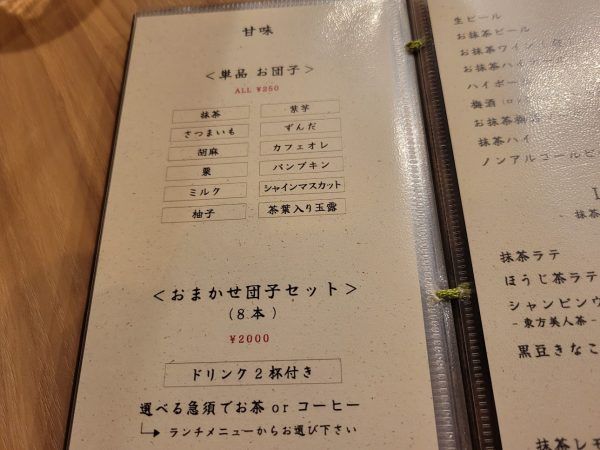 甘味
<単品 お団子>
ALL ¥250
抹茶
紫芋
さつまいも
ずんだ
胡麻
カフェオレ
栗
パンプキン
ミルク
シャインマスカット
柚子
茶葉入り玉露
<おまかせ団子セット>
(8本)
¥2000
ドリンク2杯付き
選べる急須でお茶 or コーヒー
ランチメニューからお選び下さい
生ビール
お抹茶ビール
お抹茶ワイン
お抹茶ハイボール
ハイボール
梅酒(ロ
お抹茶梅酒
抹茶ハイ
ノンアルコールビ
抹茶
抹茶ラテ
ほうじ茶ラテ
シャンピンウ
-東方美人茶-
黒豆きなこ
抹茶レモ